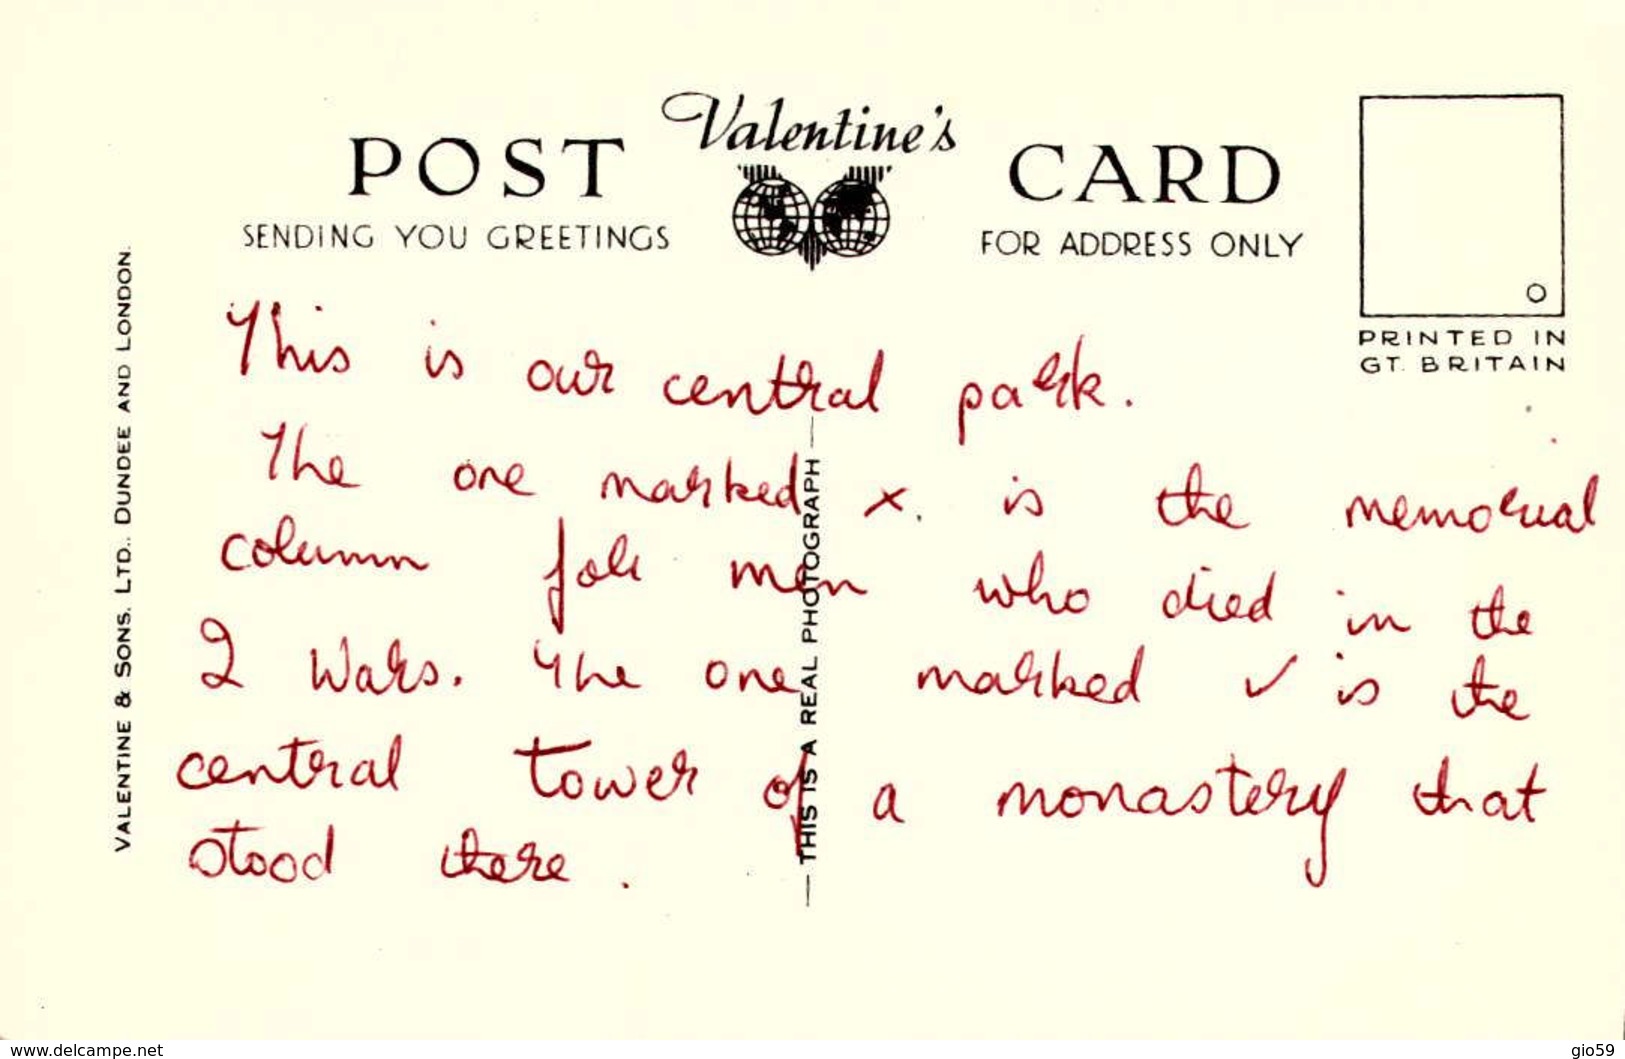 Valentine's
POST CARD
SENDING YOU GREETINGS
FOR ADDRESS ONLY
PRINTED IN
GT. BRITAIN
VALENTINE & SONS, LTD. DUNDEE AND LONDON.
This is our central park.
The one marked x. is the memorial
column for men who died in the
2 Wars. The one marked ✓ is the
central tower of a monastery that
stood there.
— THIS IS A REAL PHOTOGRAPH —
www.delcampe.net
gio59